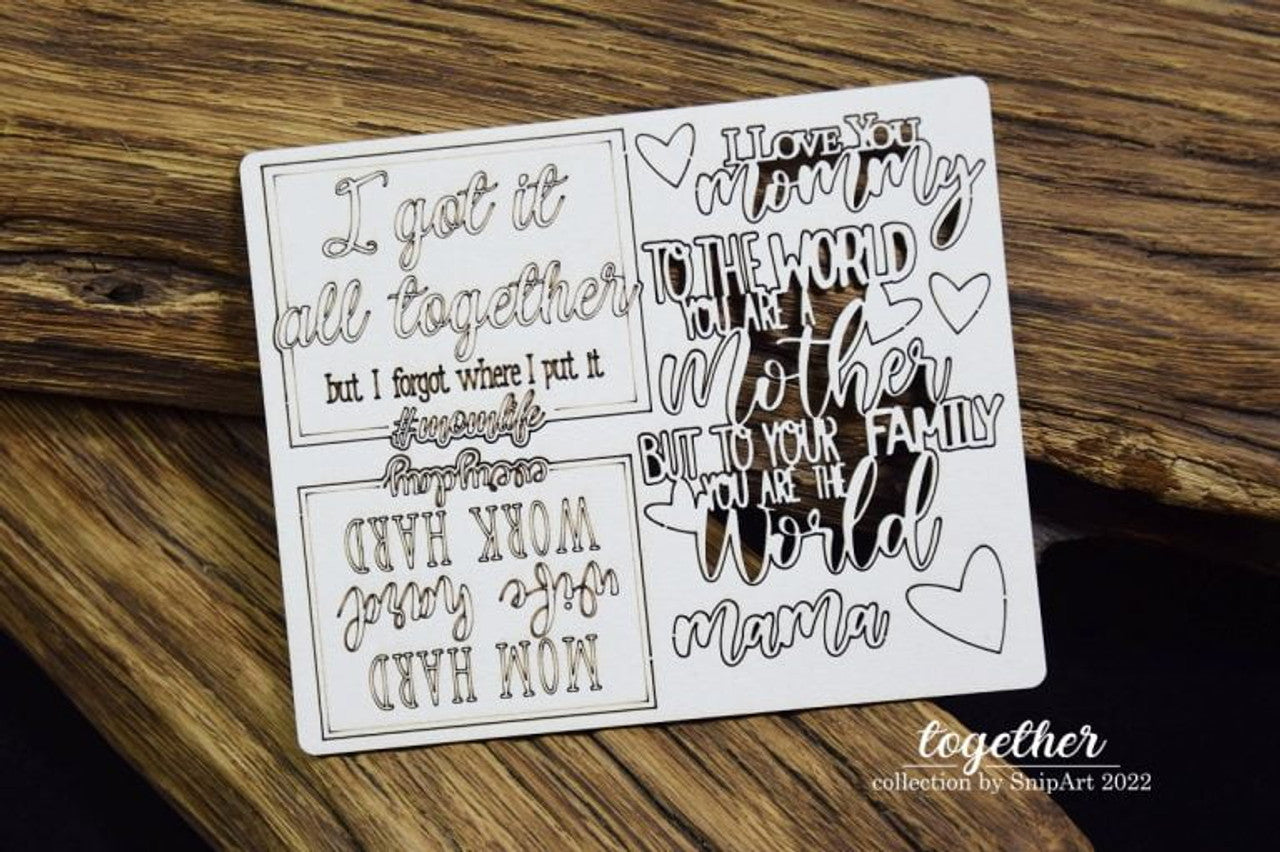 I got it
all together
but I forgot where I put it
#momlife
MOM HARD
wife hard
WORK HARD
everyday
I LOVE YOU
mommy
TO THE WORLD
YOU ARE A
Mother
BUT TO YOUR FAMILY
YOU ARE THE
World
mama
together
collection by SnipArt 2022